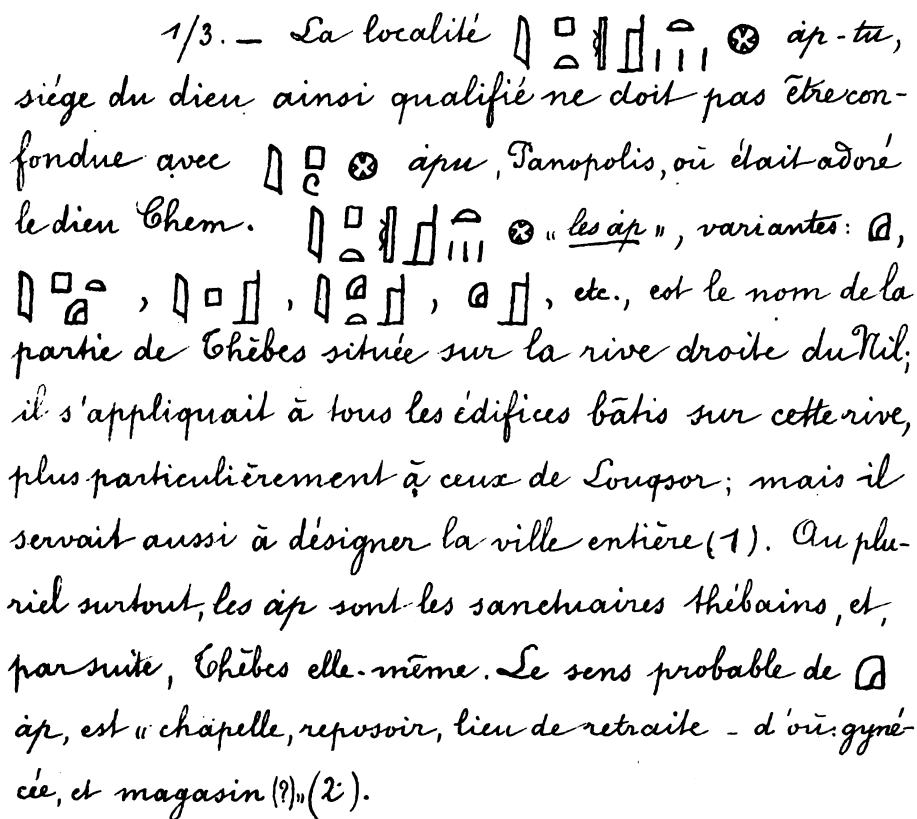 1/3. — La localité 𓇋𓊪𓏏 𓏏𓏥𓊖 ȧp-tu,
siége du dieu ainsi qualifié ne doit pas être con-
fondue avec 𓇋𓊪𓏲𓊖 ȧpu, Panopolis, où était adoré
le dieu Chem. 𓇋𓊪𓏏 𓏏𓏥𓊖 « les ȧp », variantes: ,
, , , , etc., est le nom de la
partie de Thèbes située sur la rive droite du Nil;
il s'appliquait à tous les édifices bâtis sur cette rive,
plus particulièrement à ceux de Louqsor; mais il
servait aussi à désigner la ville entière (1). Au plu-
riel surtout, les ȧp sont les sanctuaires thébains, et,
par suite, Thèbes elle-même. Le sens probable de
ȧp, est « chapelle, reposoir, lieu de retraite - d'où: gyné-
cée, et magasin (?) » (2).